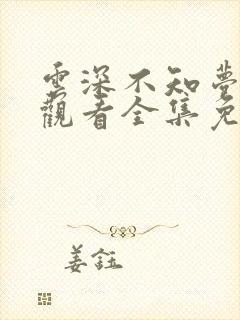 雲深不知夢
觀看全集免
姜鈺